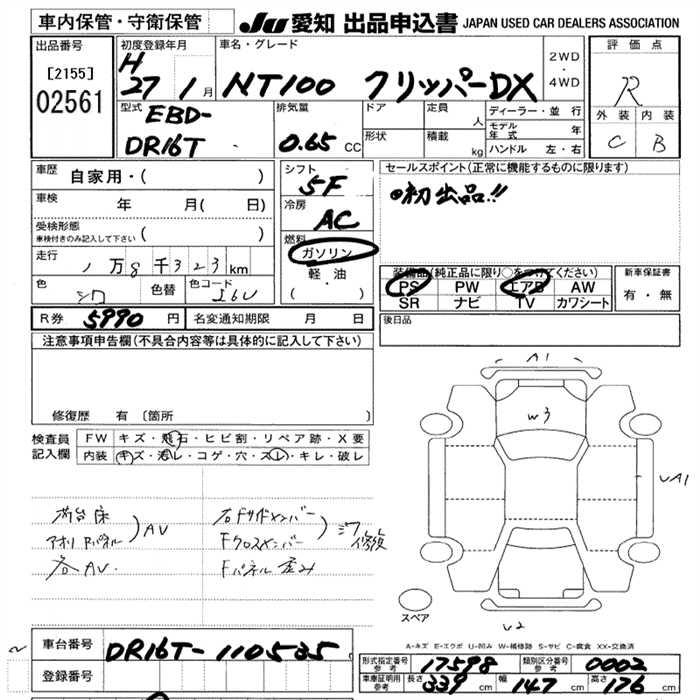 車内保管・守衛保管
JU 愛知 出品申込書 JAPAN USED CAR DEALERS ASSOCIATION
出品番号
[2155]
02561
初度登録年月
H
27 1 月
車名・グレード
NT100 クリッパーDX
2WD
・
4WD
評価点
R
外装 内装
C B
型式
EBD-
DR16T
排気量
0.65 CC
ドア
形状
定員 人
積載 kg
ディーラー・並行
モデル年式 年
ハンドル 左・右
車歴 自家用・( )
車検 年 月( 日)
受検形態
車検付きのみ記入して下さい ( )
走行 1万8千323km
色 シロ 色替 色コード
シフト
5F
冷房
AC
燃料
ガソリン
軽油
( ・ )
セールスポイント(正常に機能するものに限ります)
初出品!!
装備品(純正品に限り○をつけてください)
PS PW エアB AW
SR ナビ TV カワシート
新車保証書
有・無
R券 5990 円 名変通知期限 月 日
後日品
注意事項申告欄(不具合内容等は具体的に記入して下さい)
修復歴 有〔箇所 〕
検査員
記入欄
FW キズ・飛石・ヒビ割・リペア跡・X要
内装 キズ・汚レ・コゲ・穴・スレ・キレ・破レ
荷台床
アオリ Rパネル
) AV
各AV.
右Fサイドメンバー
Fクロスメンバー
Fパネル 歪み
A1
W3
UA1
U2
スペア
A-キズ E-エクボ U-凹み W-補修跡 S-サビ C-腐食 XX-交換済
車台番号 DR16T-110535
登録番号
形式指定番号 参考 17598 類別区分番号 参考 0002
車庫証明用 参考 長さ 339 cm 幅 147 cm 高さ 176 cm